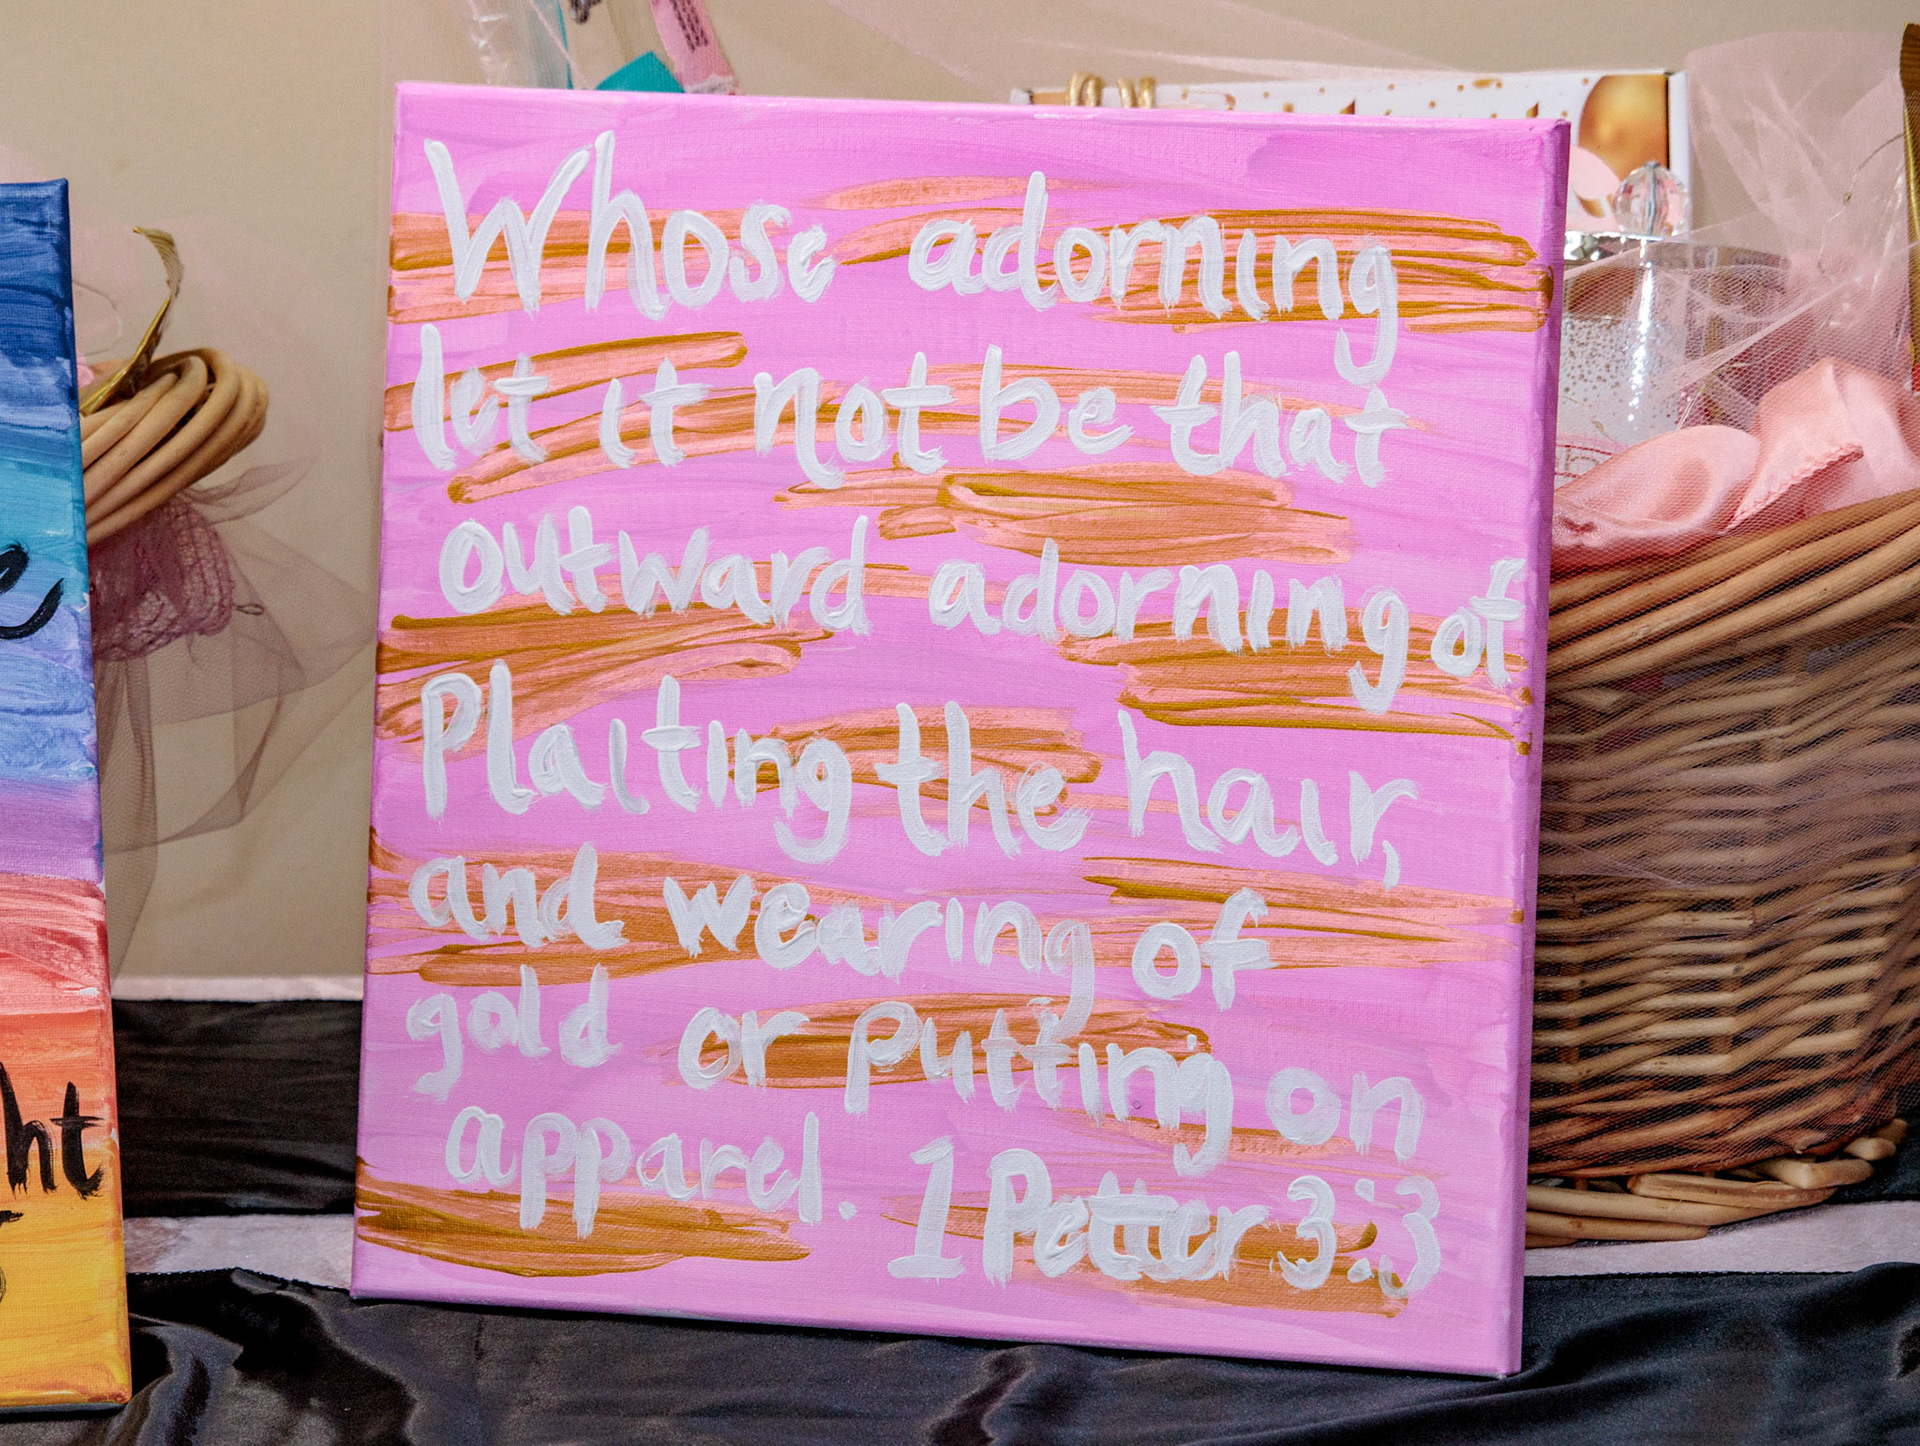 Whose adorning
let it not be that
outward adorning of
Plaiting the hair,
and wearing of
gold or putting on
apparel. 1 Petter 3:3
e
ht